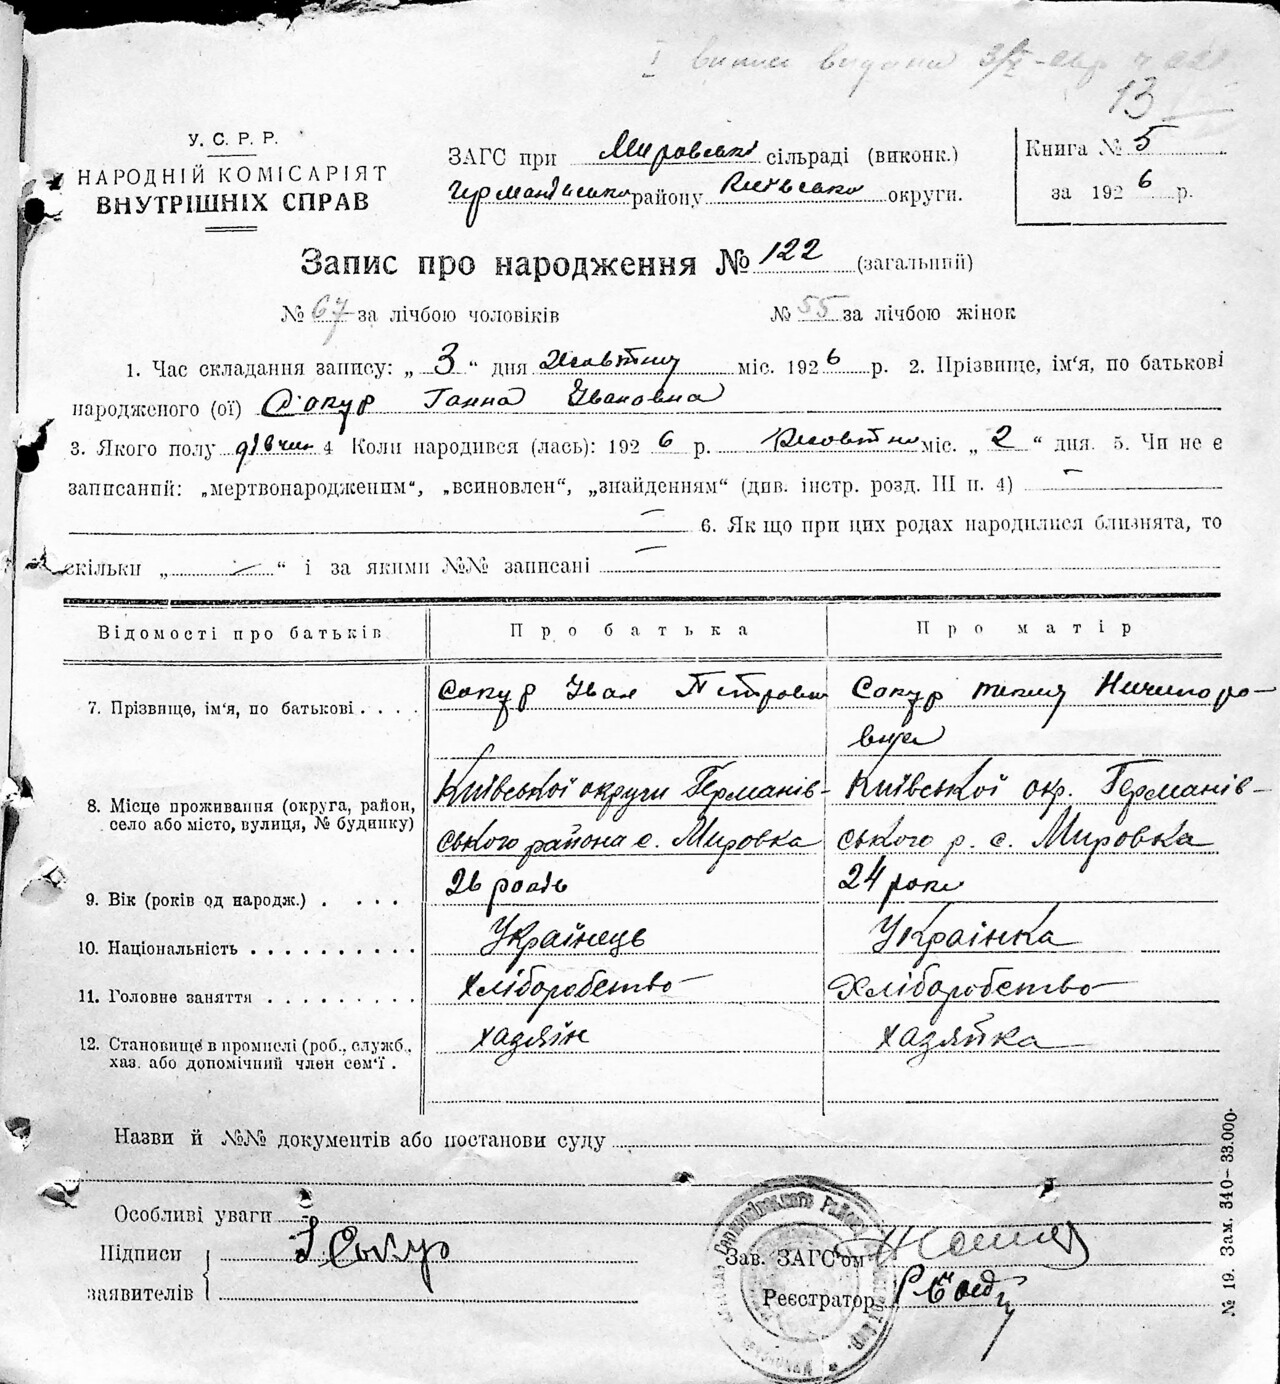 13
У. С. Р. Р.
НАРОДНІЙ КОМІСАРІЯТ
ВНУТРІШНІХ СПРАВ
ЗАГС при Мировській сільраді (виконк.)
району Київської округи.
Книга № 5
за 1926 р.
Запис про народження № 122 (загальний)
№ 67 за лічбою чоловіків № 55 за лічбою жінок
1. Час складання запису: „ 3 “ дня Жовтня міс. 1926 р. 2. Прізвище, ім'я, по батькові
народженого (ої) Сокур Ганна Івановна
3. Якого полу дівчин 4 Коли народився (лась): 1926 р. Жовтня міс. „ 2 “ дня. 5. Чи не є
записаний: „мертвонародженим“, „всиновлен“, „знайденням“ (див. інстр. розд. III п. 4) —
— 6. Як що при цих родах народилися близнята, то
скільки „ — “ і за якими №№ записані —
Відомості про батьків Про батька Про матір
7. Прізвище, ім'я, по батькові . . . . Сокур Іван Петрович Сокур Ничипоро-
вна
8. Місце проживання (округа, район, село або місто, вулиця, № будинку) Київської округи Германів- Київської окр. Германів-
ського района с. Мировка ського р. с. Мировка
9. Вік (років од народж.) . . . . 26 років 24 роки
10. Національність . . . . . . . . . . Українець Українка
11. Головне заняття . . . . . . . . . Хліборобство Хліборобство
12. Становище в промислі (роб., служб., хаз. або допомічний член сем'ї . хазяїн хазяйка
Назви й №№ документів або постанови суду
Особливі уваги
Підписи
заявителів
І Сокур
Зав. ЗАГС'ом
Реєстратор
№ 19. Зам. 340–33.000.